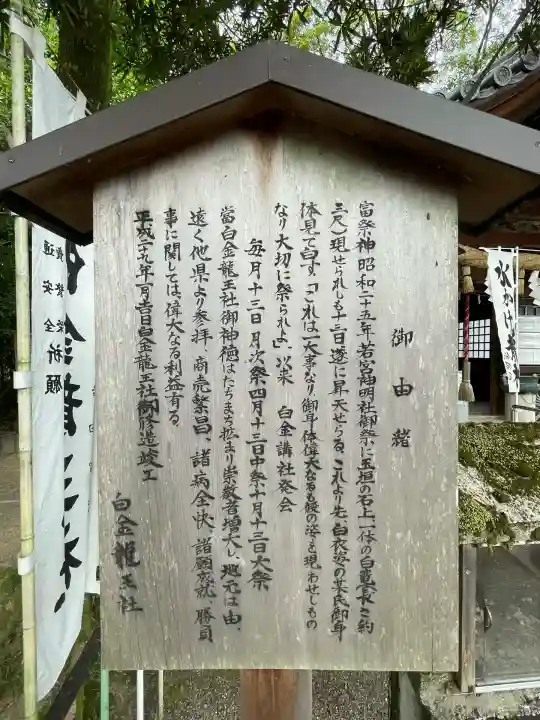 御由緒
當祭神昭和二十五年、若宮神明社御祭に玉垣の石上一体の白竜(長さ約
三尺)現せられしも十三日遂に昇天せらる、これより先、白衣姿の某氏御身
体見て白す、「これは一大事なり、御身体偉大なるも仮の姿を現わせしもの
なり大切に祭られよ」、以来 白金講社発会
毎月十三日月次祭四月十三日中祭十月十三日大祭
當白金龍王社御神徳はたちまち拡まり崇敬者増大し、地元は由、
遠く他県より参拝、商売繁昌、諸病全快、諸願成就、勝負
事に関しては、偉大なる利益有る。
平成二十九年一月吉日白金龍王社御修造竣工
白金龍王社
安全祈願
水かけ